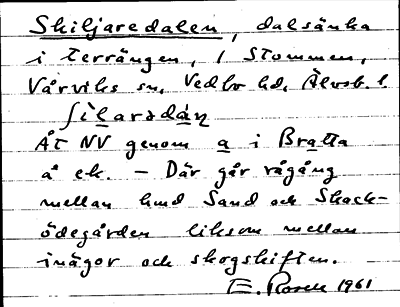 Skiljaredalen, dalsänka
i terrängen, i Stommen,
Vårviks sn, Vedbo hd, Älvsb. l.
ʃìlaradàṇ
ÅT NV genom a i Bratta
å ek. – Där går rågång
mellan hmd Sand och Skack-
ödegården liksom mellan
inägor och skogskiften.
E. Rosell 1961